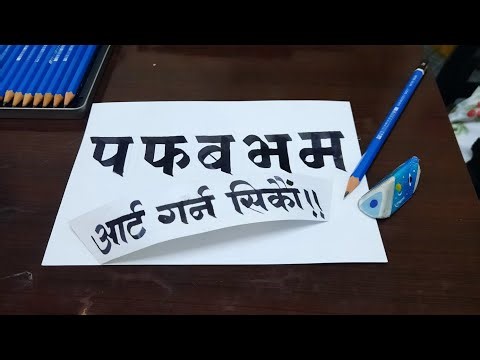 प फ ब भ म
आर्ट गर्न सिकौं!!